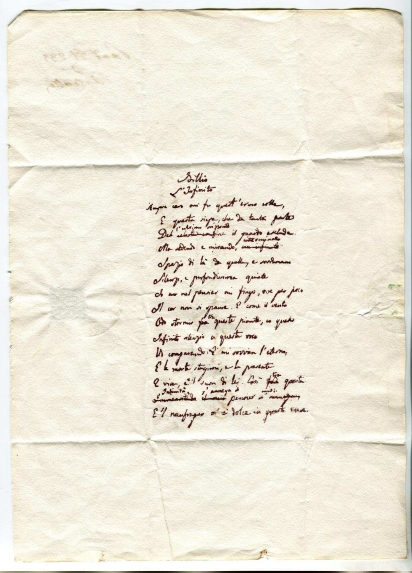 Idillio
L'Infinito
Sempre caro mi fu quest'ermo colle,
E questa siepe, che da tanta parte
Dell'ultimo orizzonte il guardo esclude.
Ma sedendo e mirando, interminato
Spazio di là da quella, e sovrumani
Silenzi, e profondissima quiete
Io nel pensier mi fingo, ove per poco
Il cor non si spaura. E come il vento
Odo stormir fra queste piante, io quello
Infinito silenzio a questa voce
Vo comparando: E mi sovvien l'eterno,
E le morte stagioni, e la presente
E viva, e 'l suon di lei. Così fra questa
Immensitade il mio pensier s'annega,
E 'l naufragar m'è dolce in questo mare.